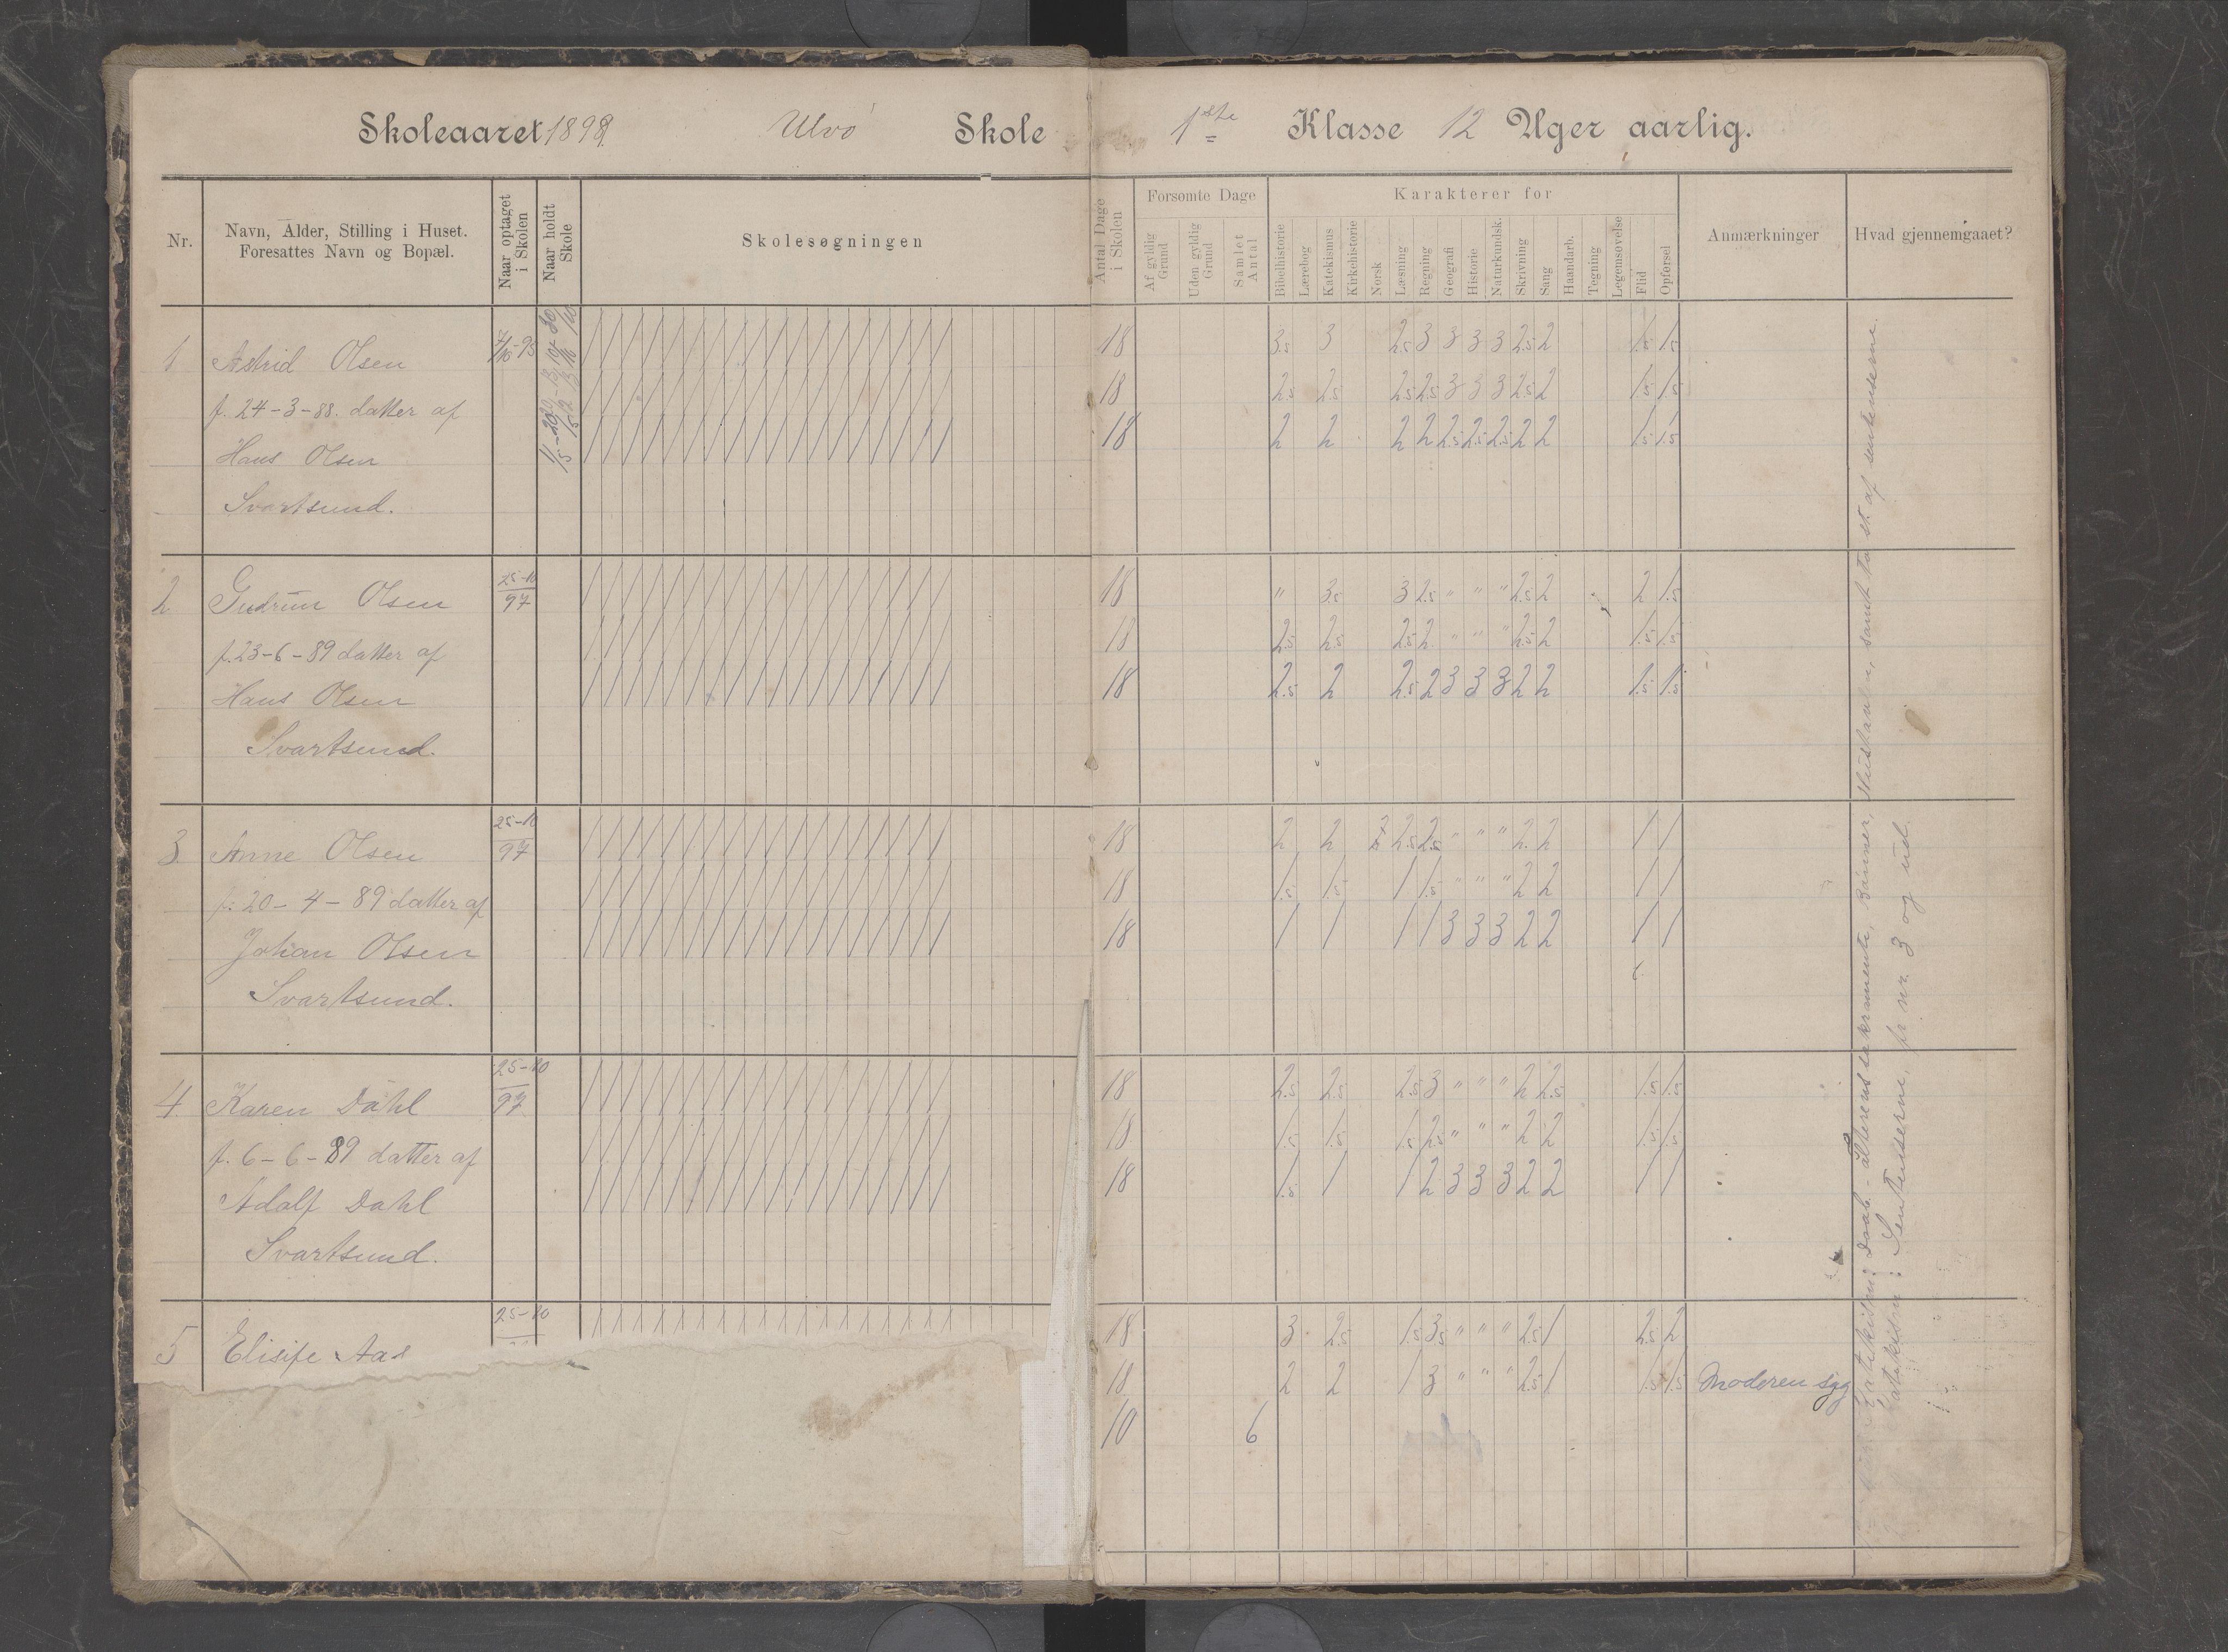 Skoleaaret 1898 Ulvö Skole 1ste Klasse 12 Uger aarlig.
Nr.
Navn, Alder, Stilling i Huset.
Foresattes Navn og Bopæl.
Naar optaget
i Skolen
Naar holdt
Skole
Skolesøgningen
Antal Dage
i Skolen
Forsømte Dage
Af gyldig
Grund
Uden gyldig
Grund
Samlet
Antal
Karakterer for
Bibelhistorie
Lærebog
Katekismus
Kirkehistorie
Norsk
Læsning
Regning
Geografi
Historie
Naturkundsk.
Skrivning
Sang
Haandarb.
Tegning
Legemsøvelse
Flid
Opførsel
Anmærkninger
Hvad gjennemgaaet?
1 Astrid Olsen
f. 24-3-88. datter af
Hans Olsen
Svartsund.
18 3.5 3 2.5 3 3 3 3 2.5 2 1.5 1.5
18 2.5 2.5 2.5 2.5 3 3 3 2.5 2 1.5 1.5
18 2 2 2 2 2.5 2.5 2.5 2 2 1.5 1.5
2 Gudrun Olsen 25-10
97
f. 23-6-89 datter af
Hans Olsen
Svartsund.
18 " 3.5 3 2.5 " " " 2.5 2 2 1.5
18 2.5 2.5 2.5 2 " " " 2.5 2 1.5 1.5
18 2.5 2 2.5 2 3 3 3 2 2 1.5 1.5
3 Anne Olsen 25-10
97
f. 20-4-89 datter af
Johan Olsen
Svartsund.
18 2 2 2.5 2.5 " " " 2 2 1 1
18 1.5 1.5 1 1.5 " " " 2 2 1 1
18 1 1 1 1 3 3 3 2 2 1 1
4 Karen Dahl 25-10
97
f. 6-6-89 datter af
Adolf Dahl
Svartsund.
18 2.5 2.5 2.5 3 " " " 2 2.5 1.5 1.5
18 1.5 1.5 1.5 2.5 " " " 2 2 1.5 1.5
18 1.5 1 1 2 3 3 3 2 2 1 1
5 Elisife Aas 25-10
18 3 2.5 1.5 3.5 " " " 2.5 1 2.5 2
18 2 2 1 3 " " " 2.5 1 1.5 1.5 Moderen syg
10 6
Daab - Alterens sakramente, Bønner, Hustavlen, samt to st. af sentenserne.
Sentenserne, fr. nr. 3 og ud.